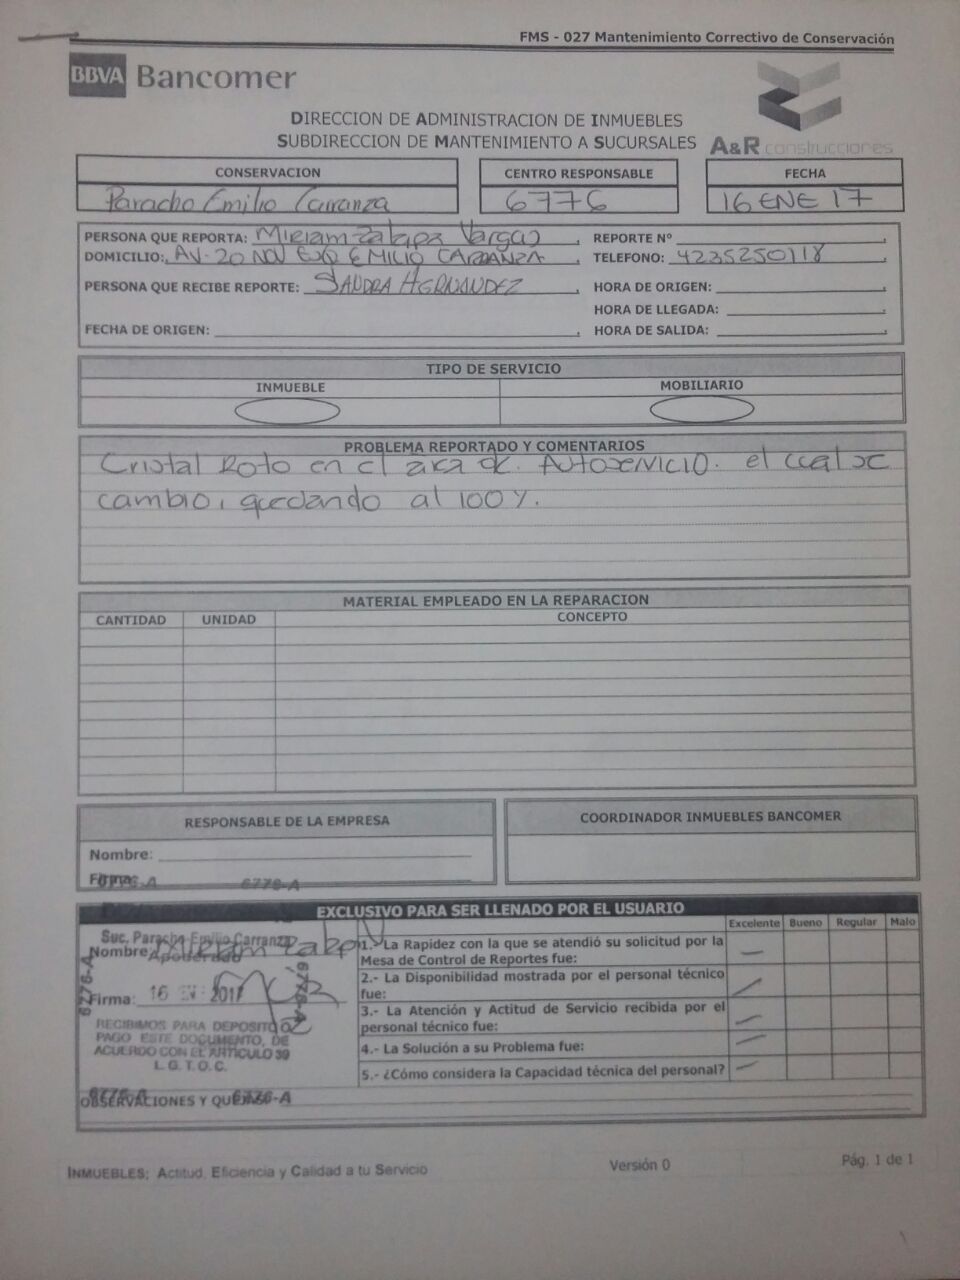 FMS - 027 Mantenimiento Correctivo de Conservación
BBVA Bancomer
DIRECCION DE ADMINISTRACION DE INMUEBLES
SUBDIRECCION DE MANTENIMIENTO A SUCURSALES
A&R construcciones
CONSERVACION
Paracho Emilio Carranza
CENTRO RESPONSABLE
6776
FECHA
16 ENE 17
PERSONA QUE REPORTA: Miriam Zalapa Vargas
REPORTE Nº
DOMICILIO: AV. 20 NOV ESQ EMILIO CARRANZA
TELEFONO: 4235250118
PERSONA QUE RECIBE REPORTE: SANDRA HERNANDEZ
HORA DE ORIGEN:
HORA DE LLEGADA:
FECHA DE ORIGEN:
HORA DE SALIDA:
TIPO DE SERVICIO
INMUEBLE MOBILIARIO
PROBLEMA REPORTADO Y COMENTARIOS
Cristal Roto en el area de AUTOSERVICIO. el cual se
cambio, quedando al 100%.
MATERIAL EMPLEADO EN LA REPARACION
CANTIDAD UNIDAD CONCEPTO
RESPONSABLE DE LA EMPRESA
Nombre:
Firma:
6776-A 6776-A
COORDINADOR INMUEBLES BANCOMER
EXCLUSIVO PARA SER LLENADO POR EL USUARIO
Excelente Bueno Regular Malo
Suc. Paracho Emilio Carranza
Nombre: Miriam
Apoderado
Firma: 16 2017
6776-A
6776-A
RECIBIMOS PARA DEPOSITO O
PAGO ESTE DOCUMENTO, DE
ACUERDO CON EL ARTICULO 39
L.G.T.O.C.
6776-A 6776-A
1.- La Rapidez con la que se atendió su solicitud por la
Mesa de Control de Reportes fue:
2.- La Disponibilidad mostrada por el personal técnico
fue:
3.- La Atención y Actitud de Servicio recibida por el
personal técnico fue:
4.- La Solución a su Problema fue:
5.- ¿Cómo considera la Capacidad técnica del personal?
OBSERVACIONES Y QUEJAS:
INMUEBLES; Actitud, Eficiencia y Calidad a tu Servicio
Versión 0
Pág. 1 de 1